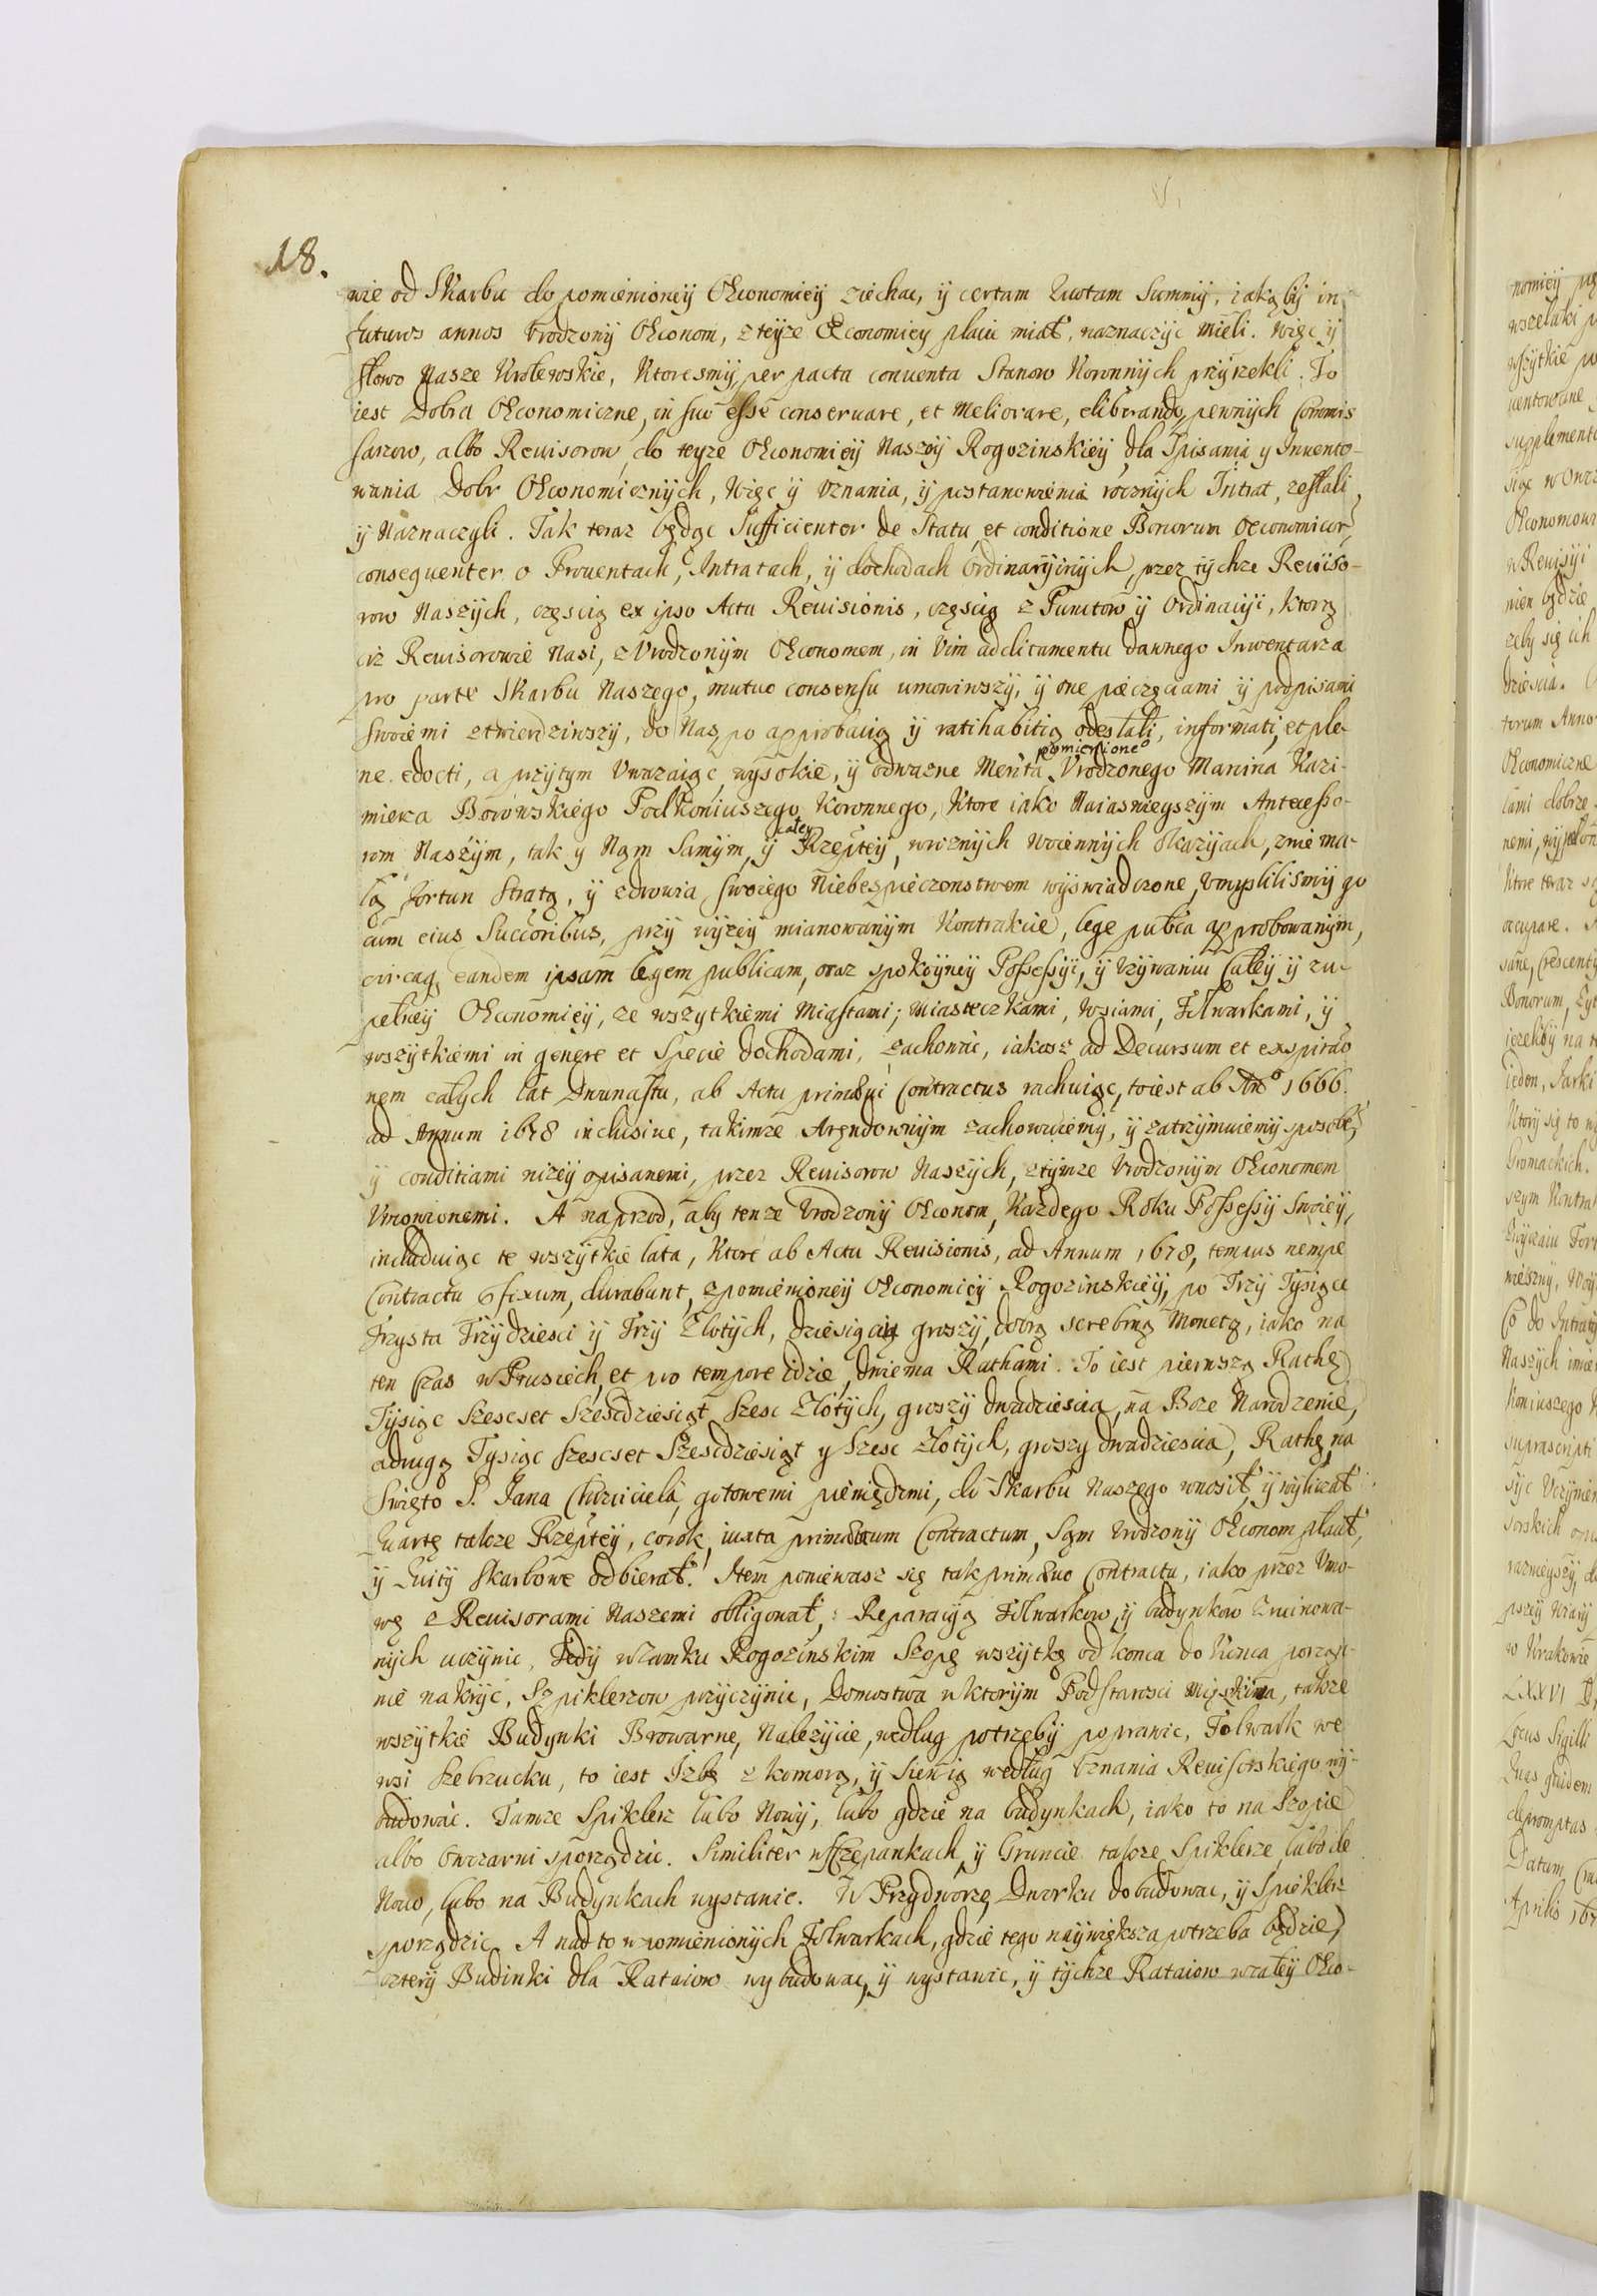 18.
nie od Skarbu do pomienioneÿ Œconomieÿ ziechac, ÿ certam Quotam Summÿ, iakąbÿ in
futuros annos Vrodzonÿ Œconom, z teÿze Œconomiey płacic miał, naznaczÿc mieli. Więc ÿ
słowo Nasze Krolewskie, Ktoresmÿ per pacta conuenta Stanow Koronnÿch przÿrzekli. To
iest Dobra Œconomiczne, in suo esse conseruare, et meliorare, eliberando, pewnÿch Commis
sarzow, albo Reuisorow, do teyze Œconomieÿ Naszeÿ Rogozinskieÿ, dla Spisania y Inuento-
wania Dobr Œconomicznÿch, Więc ÿ Vznania, ÿ postanowienia rocznÿch Intrat, zesłali
ÿ Naznaczyli. Tak teraz będąc Sufficienter de Statu et conditione Bonorum Oeconomicor
consequenter o Prouentach, Intratach, ÿ dochodach Ordinarÿinÿch, przez tÿchze Reuiso-
row Naszÿch, częscią ex ipso Actu Reuisionis, częscią z Punctow ÿ Ordinacÿi, Ktorą
ciz Reuisorowie Nasi, z Vrodzonÿm Œconomem, in Vim additamentu dawnego Inwentarza
pro parte Skarbu Naszego, mutuo consensu umowiwszÿ, ÿ one pieczęciami ÿ podpisami
swoiemi ztwierdziwszÿ, do Nas, po approbacią ÿ ratihabitią odesłali, informati, et ple-
ne edocti, a przÿtym Vwazaiąc wÿsokie, ÿ odwazne Merita pomienione° Vrodzonego Marcina Kazi-
mierza Borowskiego Podkoniuszego Koronnego, Ktore iako Naiasnieyszÿm Antecesso-
rom Naszÿm, tak y Nąm Samÿm, ÿ całeÿ Rzeptey, w roznÿch Woiennÿch Okazÿach, znie ma-
łą fortun Stratą, ÿ zdrowia swoiego Niebespieczenstwem wÿswiadczone, Vmyslilismÿ go
cum eius Succoribus, przÿ wÿzeÿ mianowanÿm Kontrakcie, lege publca approbowanÿm,
circaq eandem ipsam legem publicam, oraz spokoÿneÿ Possessÿi, ÿ Vzÿwaniu Całeÿ ÿ zu-
pełneÿ Œconomieÿ, ze wszytkiemi Miastami; Miasteczkami, Wsiami, Folwarkami, ÿ
wszÿtkiemi in genere et Specie dochodami, zachowac, iakosz ad Decursum et exspirao
nem całych lat Dwunastu, ab Actu primaeui Contractus rachuiąc, toiest ab An° 1666.
ad Annum 1678 inclusiue, takimze Aręndownÿm zachowuiemÿ, ÿ zatrzÿmuiemÿ sposobe,
ÿ conditiami nizeÿ opisanemi, przez Reuisorow Naszÿch, z tÿmze Vrodzonÿm Œconomem
Vmowionemi. A naprzod, aby tenze Vrodzonÿ Œconom, Kazdego Roku Possessÿ Swoieÿ,
includuiąc te wszÿtkie lata, Ktore ab Actu Reuisionis, ad Annum 1678, tempus nempe
Contractu fixum, durabunt, z pomienioneÿ Œconomieÿ Rogozinskieÿ, po Trzÿ Tÿsiące
Trzysta Trzÿdziesci ÿ Trzÿ Złotÿch, dziesiącią groszÿ, dobrą srebrną Monetą, iako na
ten Czas w Prusiech, et pro tempore idzie, dwiema Rathami. To iest pierwszą Rathę
Tÿsiąc Szescset Szescdziesiąt Szesc Złotÿch, groszÿ dwadziescia, na Boze Narodzenie,
a drugą Tysiąc szescset Szescdziesiąt y Szesc złotÿch, groszy dwadziescia, Rathę, na
Swięto S. Jana Chrzciciela, gotowemi pieniędzmi, do Skarbu Naszego wnosił, ÿ wÿliczał
Quartę takze Rzeptey, co rok, iuxta primaeuum Contractum, Sąm Vrodzonÿ Œconom płacił,
ÿ Quitÿ skarbowe odbierał. Item poniewasz się tak primaeuo Contractu, iako przez Vmo-
wę z Reuisorami Naszemi obligował, Reparacÿą Folwarkow, ÿ budÿnkow zruinowa-
nÿch uczÿnic, Tedÿ w Zamku Rogozinskim Szopę wszÿtkę od konca do konca porząd-
nie nakrÿc, Szpiklerzow przÿczÿnic, Domostwa w ktorÿm Podstarosci Mięszkiwa, takze
wszÿtkie Budÿnki Browarne, Nalezÿcie, według potrzebÿ poprawic, Folwark we
wsi Szebrucku, to iest Izbę z komorą, ÿ Sienią według Vznania Reuisorskiego wÿ-
budowac. Tamze Spiklerz lubo Nowÿ, lubo gdzie na budÿnkach, iako to na Szopie
albo Owczarni sporządzic. Similiter w Szczepankach, ÿ Gruncie takze Spiklerze, lubo de
Nouo, lubo na Budÿnkach wystawic. W Przÿdworzę Dworku dobudowac, ÿ Spieklerz
sporządzic. A nad to w pomienionÿch Folwarkach, gdzie tego naÿwiększa potrzeba będzie,
czterÿ Budinki dla Rataiow wybudowac, ÿ wystawic, ÿ tÿchze Rataiow w całeÿ Œco-